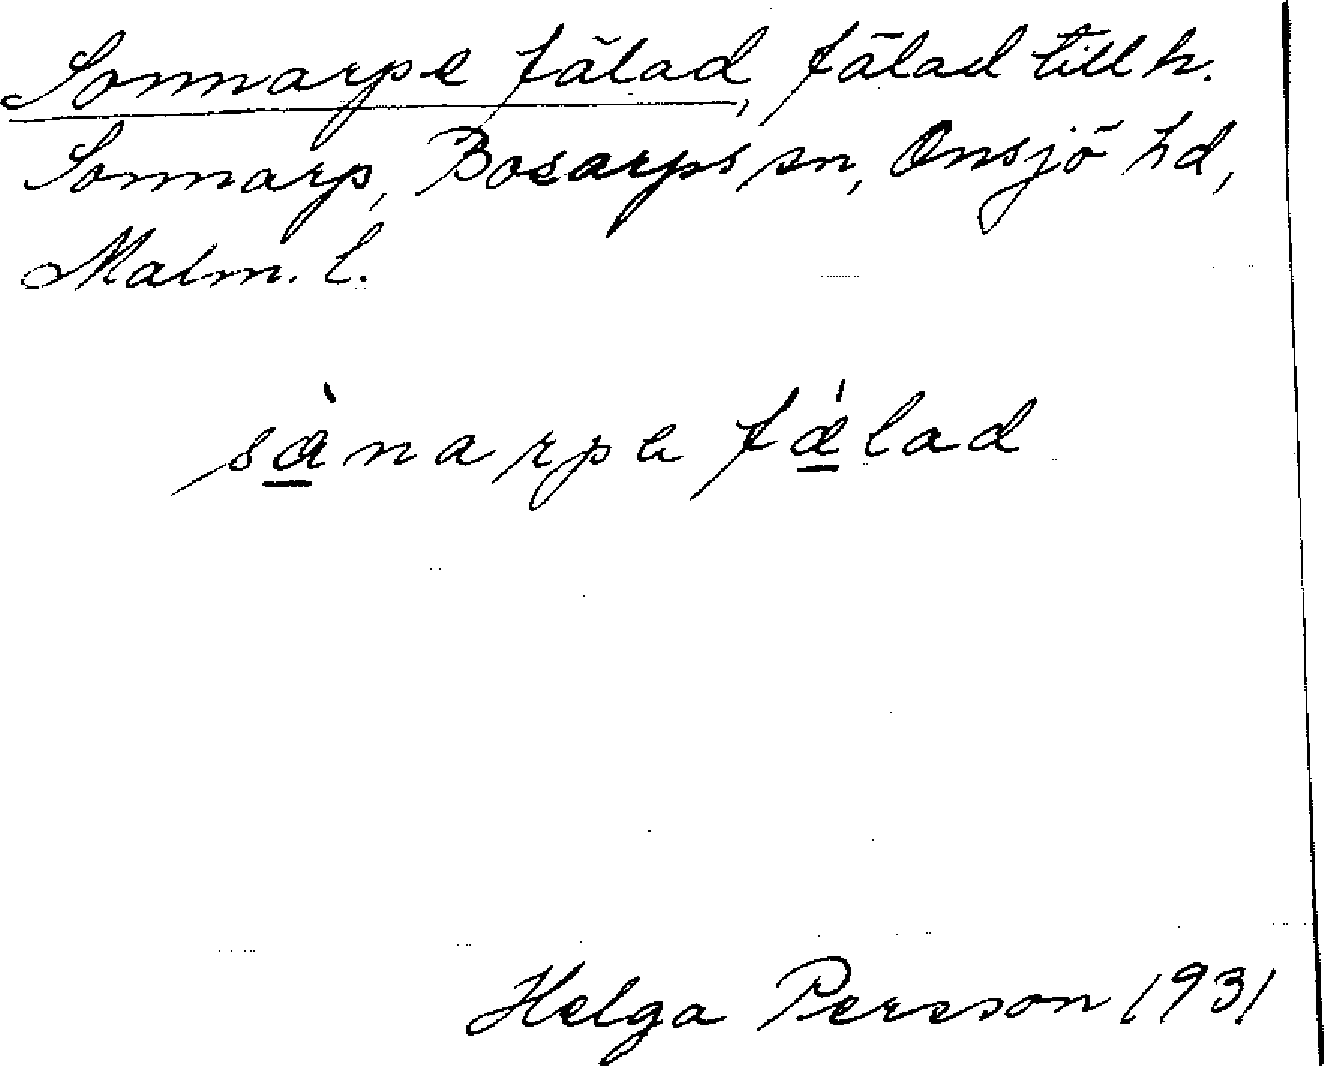 Sonnarps fälad, fälad till h.
Sonnarp, Bosarps sn, Onsjö hd,
Malm. l.
sànarpa fálad
Helga Persson 1931